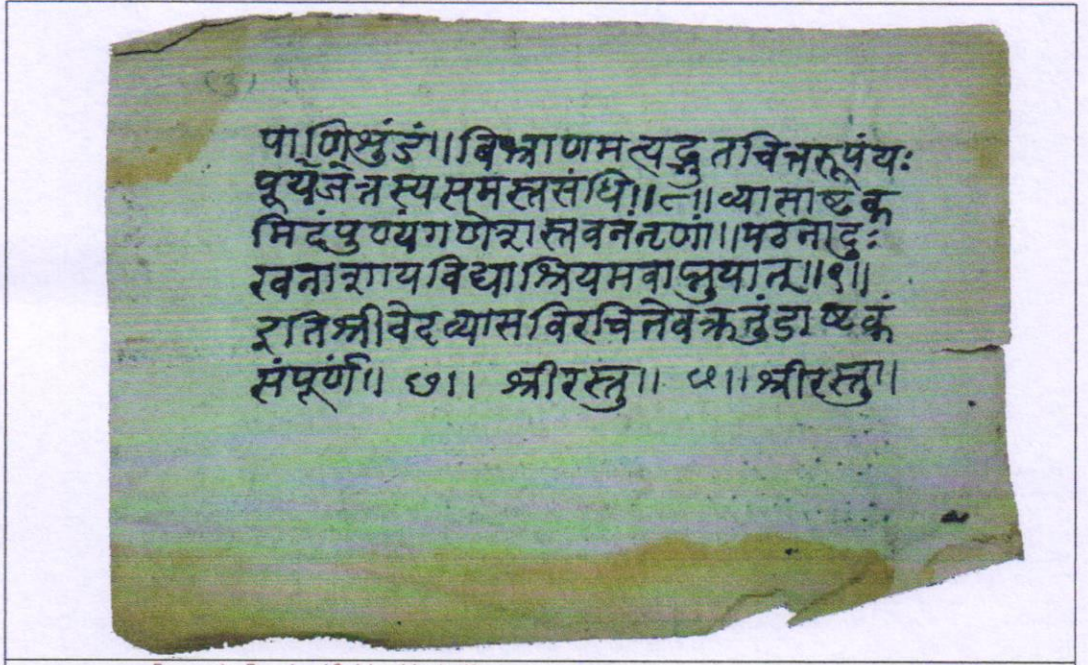 (३)
पाणिशुंडं॥बिभ्राणमत्यद्भुतचित्ररूपंयः
पूर्यजेत्तस्यसमस्तसंधि॥८॥व्यासाष्टक
मिदंपुण्यंगणेशस्तवनंनृणां॥पठनादुः
खनाशायविद्याश्रियमवाप्नुयात्॥९॥
इतिश्रीवेदव्यासविरचितेवक्रतुंडाष्टकं
संपूर्णं॥ छ॥ श्रीरस्तु॥ छ॥श्रीरस्तु॥